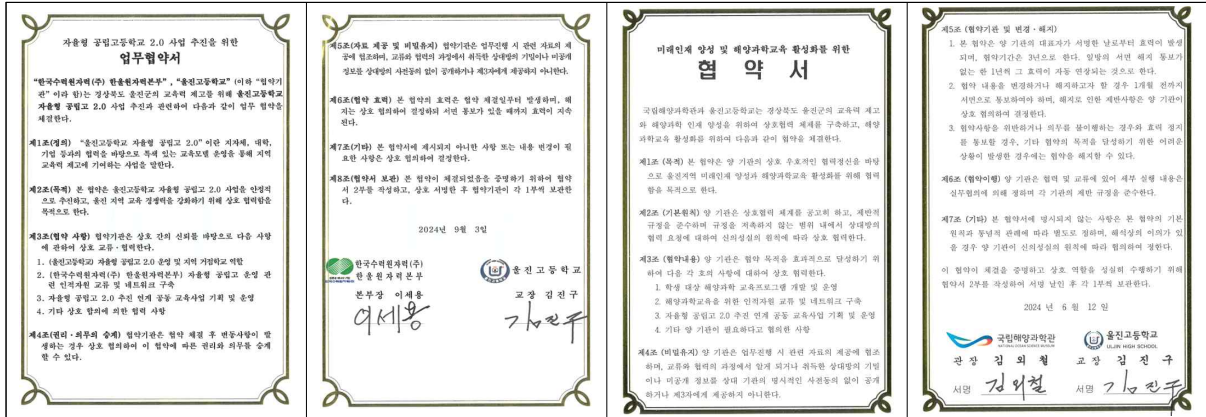 자율형 공립고등학교 2.0 사업 추진을 위한
업무협약서
"한국수력원자력(주) 한울원자력본부", "울진고등학교"(이하 "협약기
관" 이라 함)는 경상북도 울진군의 교육력 제고를 위해 울진고등학교
자율형 공립고 2.0 사업 추진과 관련하여 다음과 같이 업무 협약을
체결한다.
제1조(정의) "울진고등학교 자율형 공립고 2.0"이란 지자체, 대학,
기업 등과의 협력을 바탕으로 특색 있는 교육모델 운영을 통해 지역
교육력 제고에 기여하는 사업을 말한다.
제2조(목적) 본 협약은 울진고등학교 자율형 공립고 2.0 사업을 안정적
으로 추진하고, 울진 지역 교육 경쟁력을 강화하기 위해 상호 협력함을
목적으로 한다.
제3조(협약 사항) 협약기관은 상호 간의 신뢰를 바탕으로 다음 사항
에 관하여 상호 교류·협력한다.
1. (울진고등학교) 자율형 공립고 2.0 운영 및 지역 거점학교 역할
2. (한국수력원자력(주) 한울원자력본부) 자율형 공립고 2.0 운영 관
련 인적자원 교류 및 네트워크 구축
3. 자율형 공립고 2.0 추진 연계 공동 교육사업 기획 및 운영
4. 기타 상호 합의에 의한 협력 사항
제4조(권리·의무의 승계) 협약기관은 협약 체결 후 변동사항이 발
생하는 경우 상호 협의하여 이 협약에 따른 권리와 의무를 승계
할 수 있다.
제5조(자료 제공 및 비밀유지) 협약기관은 업무진행 시 관련 자료의 제
공에 협조하며, 교류와 협력의 과정에서 취득한 상대방의 기밀이나 미공개
정보를 상대방의 사전동의 없이 공개하거나 제3자에게 제공하지 아니한다.
제6조(협약 효력) 본 협약의 효력은 협약 체결일부터 발생하며, 해
지는 상호 협의하여 결정하되 서면 통보가 있을 때까지 효력이 지속
된다.
제7조(기타) 본 협약서에 제시되지 아니한 사항 또는 내용 변경이 필
요한 사항은 상호 협의하여 결정한다.
제8조(협약서 보관) 본 협약이 체결되었음을 증명하기 위하여 협약
서 2부를 작성하고, 상호 서명한 후 협약기관이 각 1부씩 보관한
다.
2024년 9월 3일
한국수력원자력(주)
한울원자력본부
본부장 이세용
이세용
울진고등학교
교장 김진구
김진구
미래인재 양성 및 해양과학교육 활성화를 위한
협 약 서
국립해양과학관과 울진고등학교는 경상북도 울진군의 교육력 제고
와 해양과학 인재 양성을 위하여 상호협력 체제를 구축하고, 해양
과학교육 활성화를 위하여 다음과 같이 협약을 체결한다.
제1조 (목적) 본 협약은 양 기관의 상호 우호적인 협력정신을 바탕
으로 울진지역 미래인재 양성과 해양과학교육 활성화를 위해 협력
함을 목적으로 한다.
제2조 (기본원칙) 양 기관은 상호협력 체계를 공고히 하고, 제반적
규정을 준수하며 규정을 저촉하지 않는 범위 내에서 상대방의
협력 요청에 대하여 신의성실의 원칙에 따라 상호 협력한다.
제3조 (협약내용) 양 기관은 협약 목적을 효과적으로 달성하기 위
하여 다음 각 호의 사항에 대하여 상호 협력한다.
1. 학생 대상 해양과학 교육프로그램 개발 및 운영
2. 해양과학교육을 위한 인적자원 교류 및 네트워크 구축
3. 자율형 공립고 2.0 추진 연계 공동 교육사업 기획 및 운영
4. 기타 양 기관이 필요하다고 협의한 사항
제4조 (비밀유지) 양 기관은 업무진행 시 관련 자료의 제공에 협조
하며, 교류와 협력의 과정에서 알게 되거나 취득한 상대방의 기밀
이나 미공개 정보를 상대 기관의 명시적인 사전동의 없이 공개
하거나 제3자에게 제공하지 아니한다.
제5조 (협약기관 및 변경·해지)
1. 본 협약은 양 기관의 대표자가 서명한 날로부터 효력이 발생
되며, 협약기간은 3년으로 한다. 일방의 서면 해지 통보가
없는 한 1년씩 그 효력이 자동 연장되는 것으로 한다.
2. 협약 내용을 변경하거나 해지하고자 할 경우 1개월 전까지
서면으로 통보하여야 하며, 해지로 인한 제반사항은 양 기관이
상호 협의하여 결정한다.
3. 협약사항을 위반하거나 의무를 불이행하는 경우와 효력 정지
를 통보할 경우, 기타 협약의 목적을 달성하기 위한 어려운
상황이 발생한 경우에는 협약을 해지할 수 있다.
제6조 (협약이행) 양 기관은 협력 및 교류에 있어 세부 실행 내용은
실무협의에 의해 정하며 각 기관의 제반 규정을 준수한다.
제7조 (기타) 본 협약서에 명시되지 않는 사항은 본 협약의 기본
원칙과 통념적 관례에 따라 별도로 정하며, 해석상의 이의가 있
을 경우 양 기관이 신의성실의 원칙에 따라 합의하여 정한다.
이 협약이 체결을 증명하고 상호 역할을 성실히 수행하기 위해
협약서 2부를 작성하여 서명 날인 후 각 1부씩 보관한다.
2024 년 6 월 12 일
국립해양과학관
NATIONAL OCEAN SCIENCE MUSEUM
관 장 김 외 철
서명 김외철
울진고등학교
ULJIN HIGH SCHOOL
교 장 김 진 구
서명 김진구